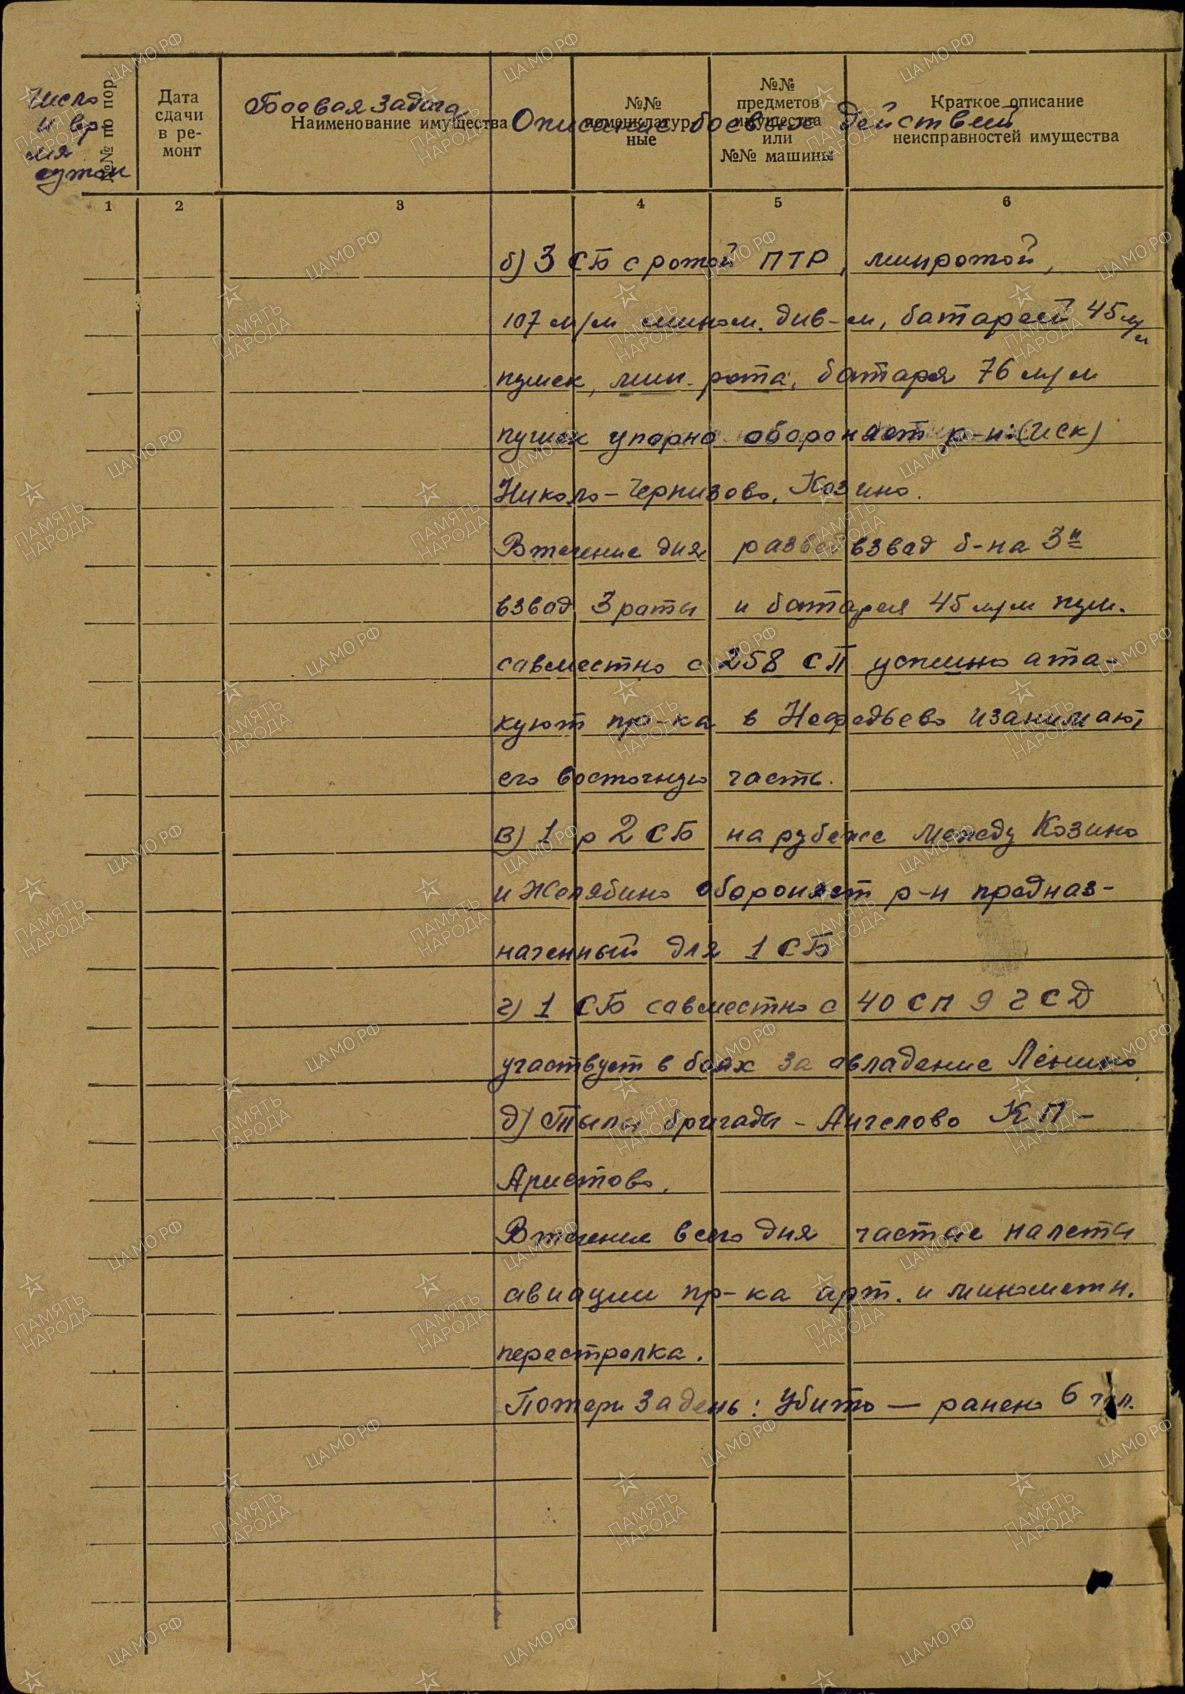 Число
и вре
мя
суток
№№ по пор.
Дата
сдачи
в ре-
монт
Боевая задача
Наименование имущества
Описание боевых действий
№№
номенклатур-
ные
№№
предметов
имущества
или
№№ машины
Краткое описание
неисправностей имущества
1 2 3 4 5 6
б) 3 СБ с ротой ПТР, минротой,
107 м/м мином. див-м, батареей 45 м/м
пушек, мин. рота, батаря 76 м/м
пушек упорно обороняет р-н: (иск)
Николо-Чернизово, Козино.
Втечение дня развед взвад б-на 3й
взвад 3 роты и батарея 45 м/м пуш.
савместно с 258 СП успешно ата-
куют пр-ка в Нефедьево и занимают
его восточную часть.
в) 1 р 2 СБ на рубеже между Козино
и Желябино обороняет р-н предназ-
наченный для 1 СБ
г) 1 СБ савместно с 40 СП 9 г СД
участвует в боях за авладение Ленино
д) Тылы бригады - Ангелово КП -
Аристово.
Втечение всего дня частые налеты
авиации пр-ка арт. и минометн.
перестрелка.
Потери за день: Убито — ранено 6 чел.
ЦАМО РФ
ПАМЯТЬ
НАРОДА